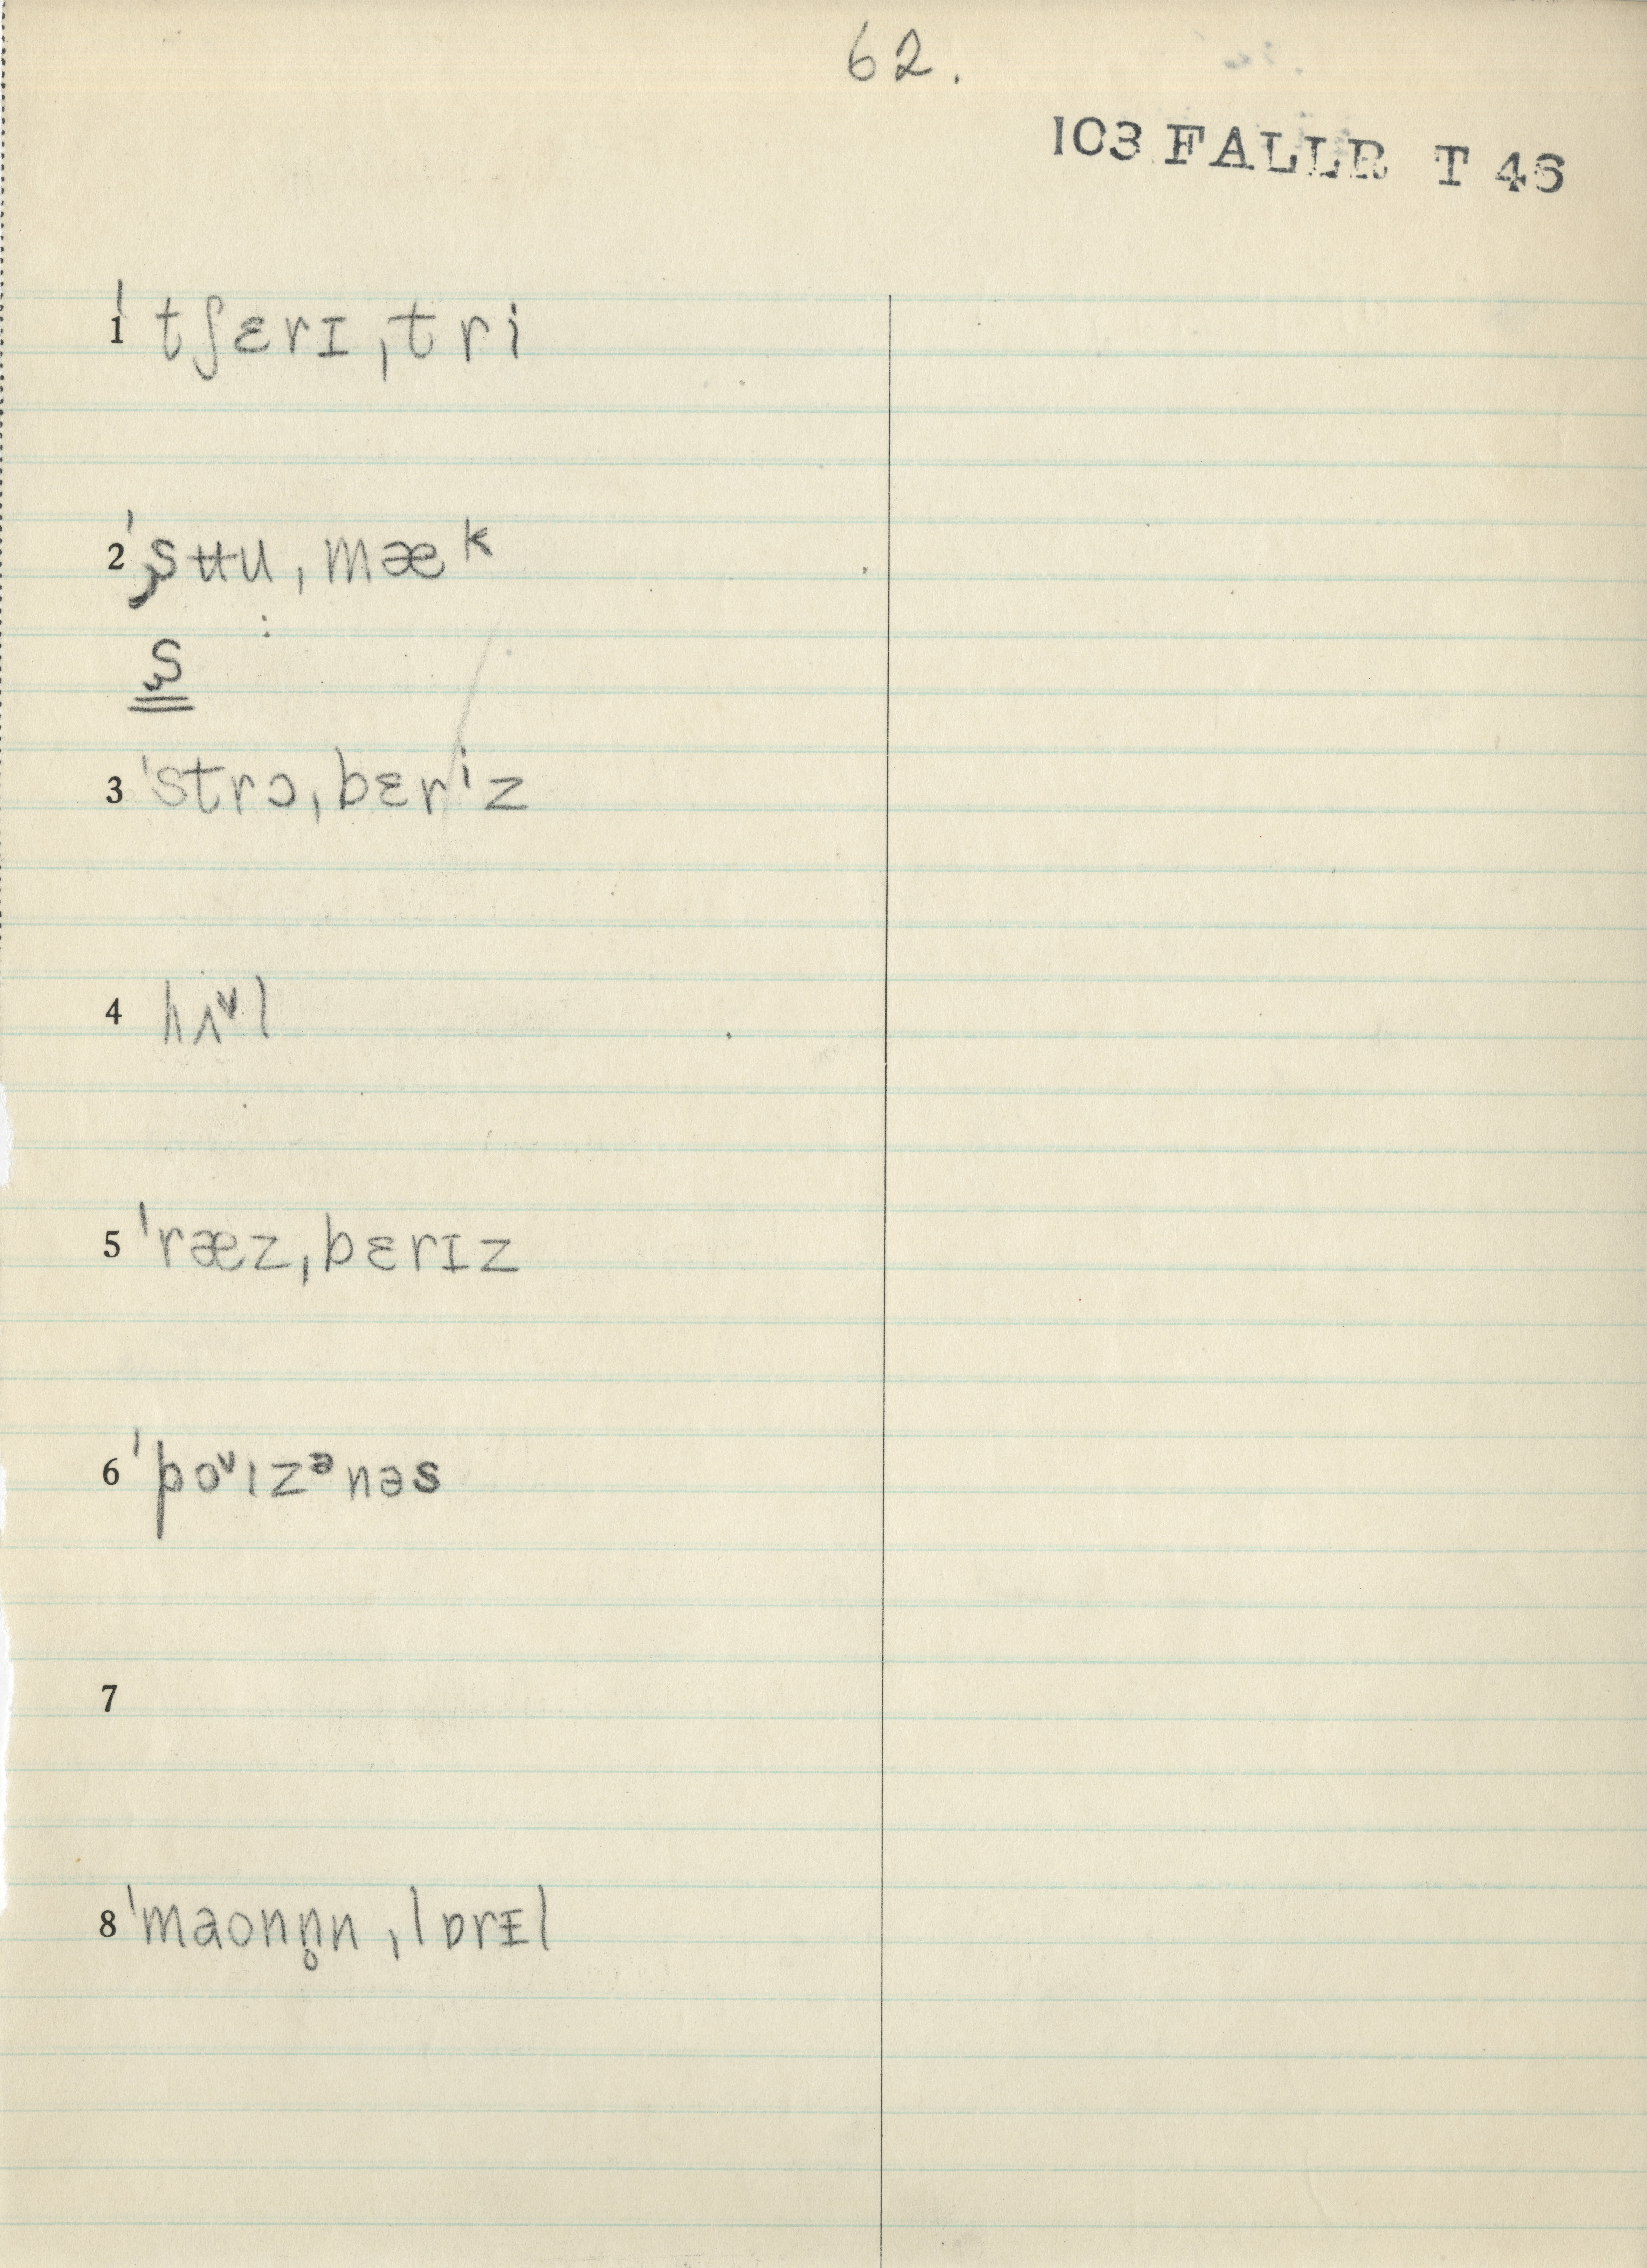 62.
103 FALLR T 46
1 ˈtʃɛrɪˌtri
2 ˈʂʉuˌmæᵏ
ʂ
3 ˈstrɔˌbɛrⁱz
4 hʌᵛl
5 ˈræzˌbɛrɪz
6 ˈpoᵛɪzᵊnəs
7
8 ˈmaonn̥nˌlɒrᵻl